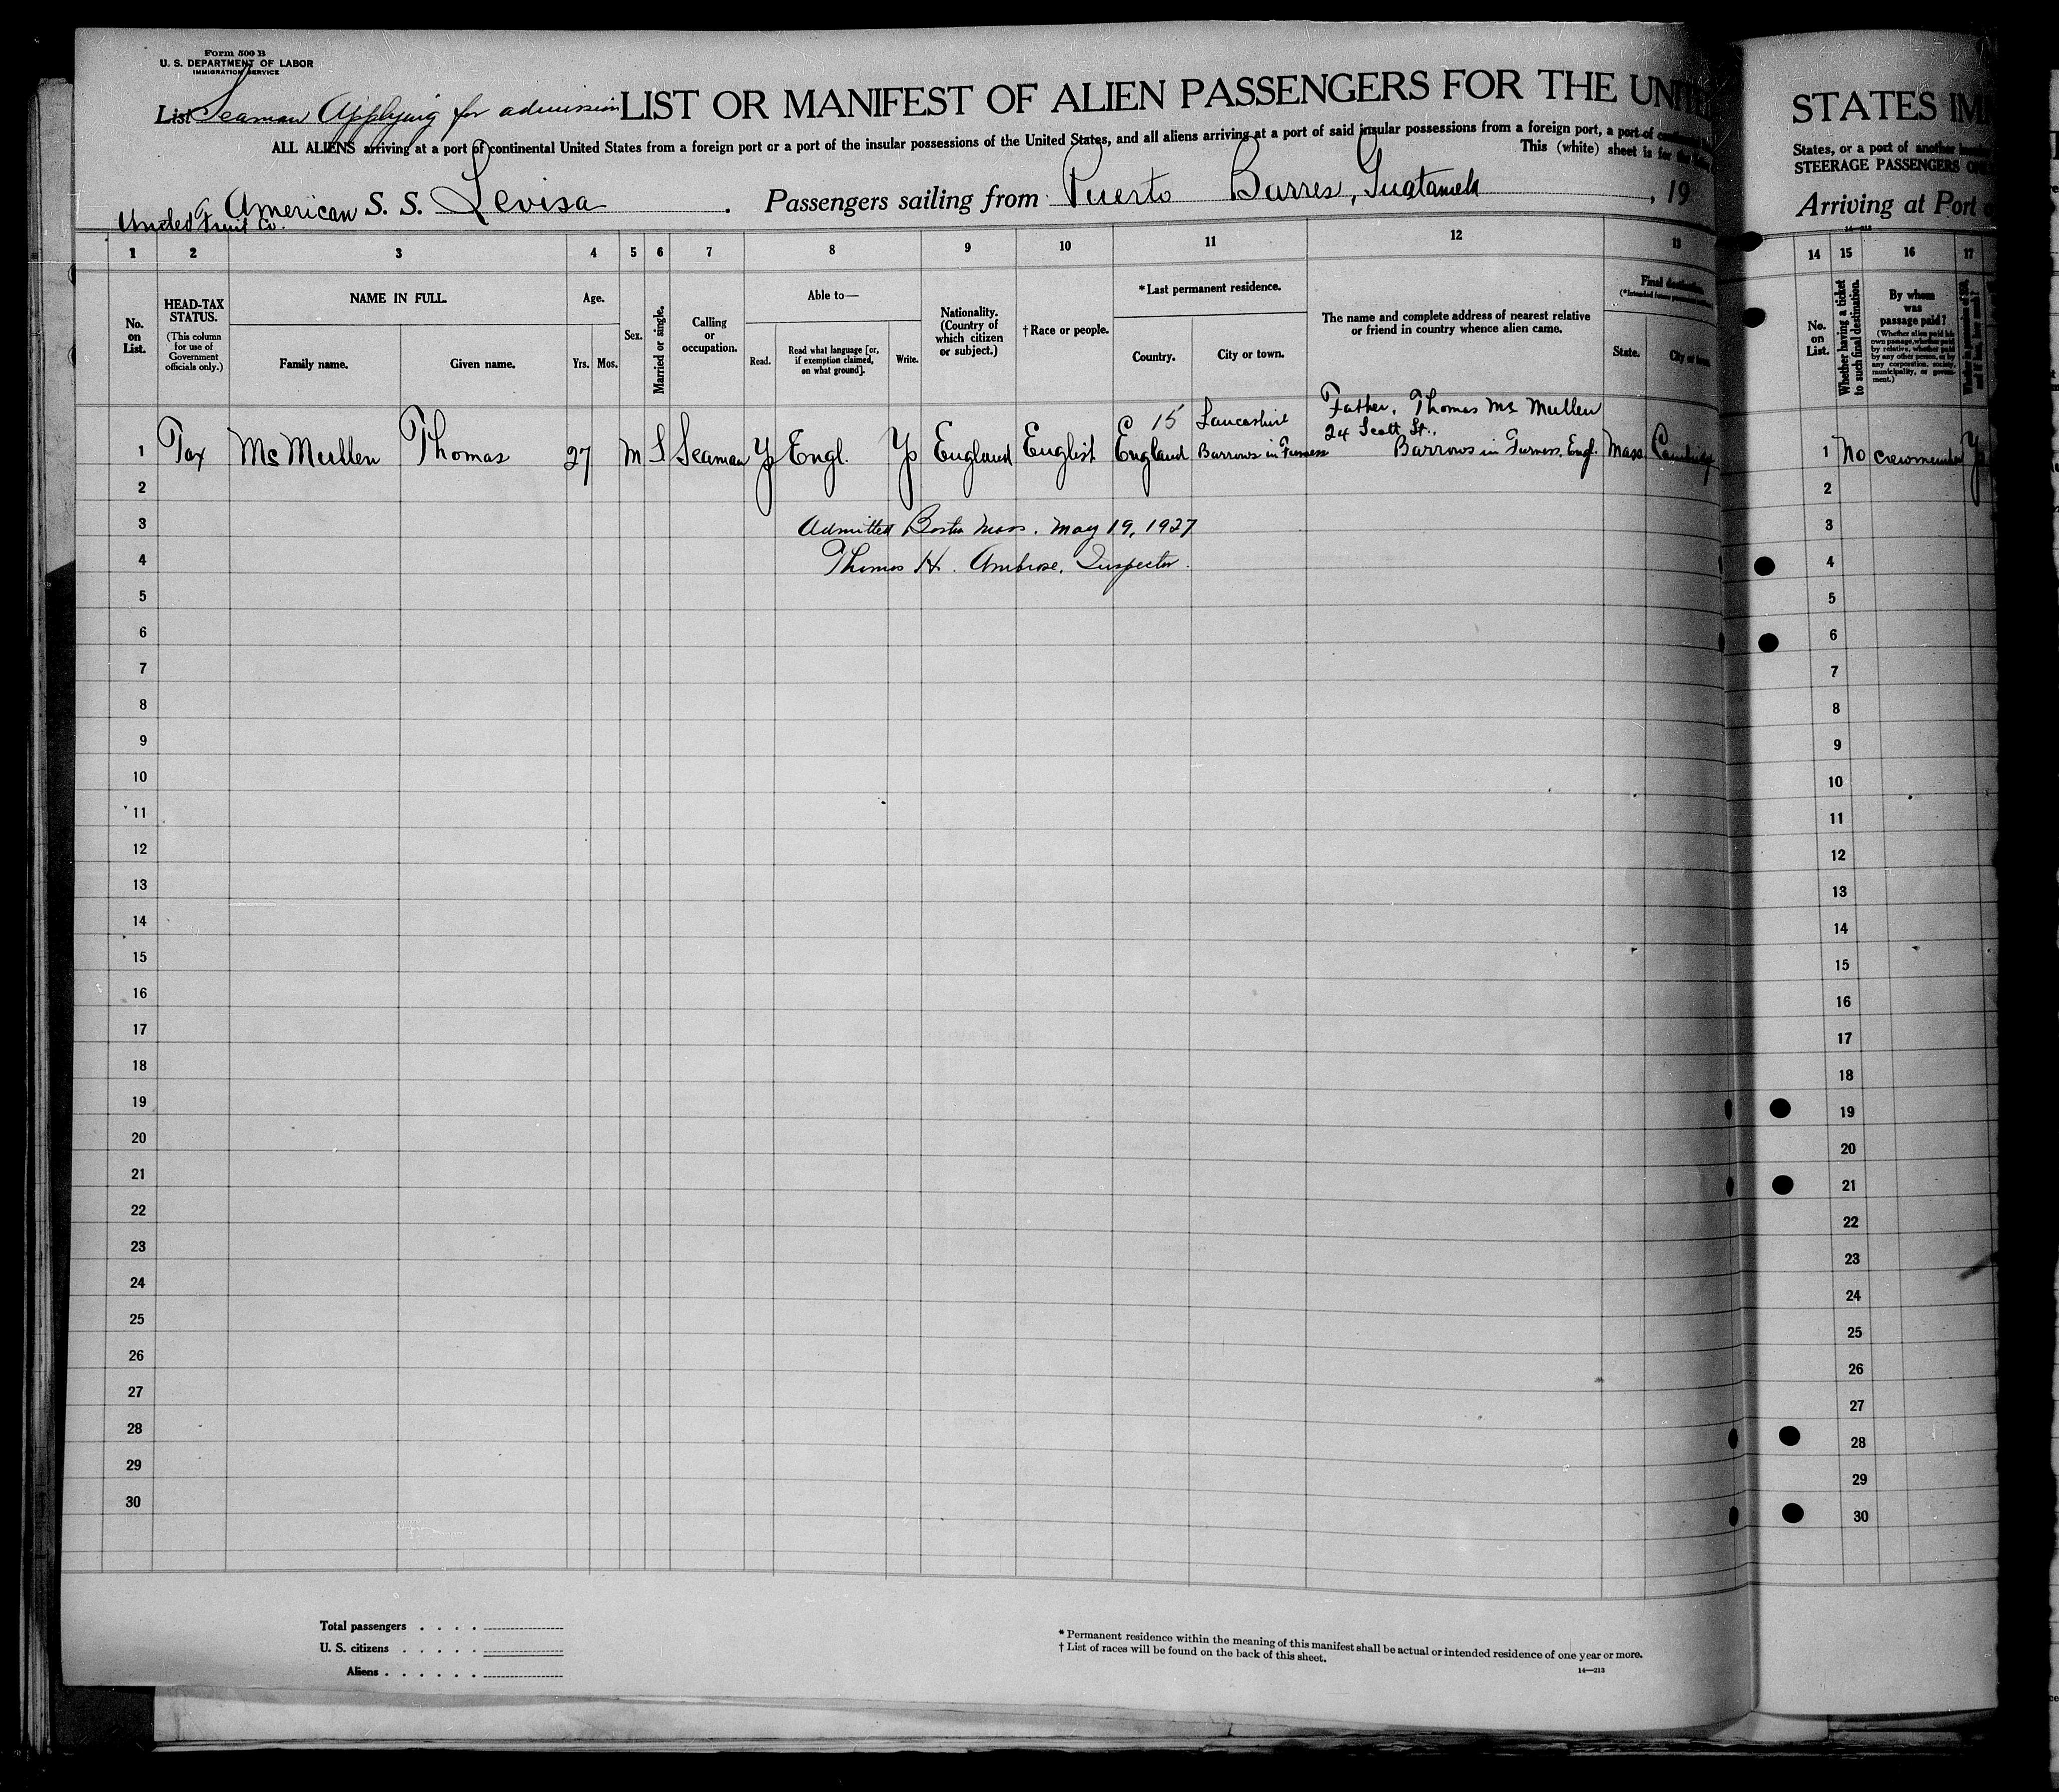 Form 500 B
U. S. DEPARTMENT OF LABOR
IMMIGRATION SERVICE
List Seaman Applying for admission LIST OR MANIFEST OF ALIEN PASSENGERS FOR THE UNITE
ALL ALIENS arriving at a port of continental United States from a foreign port or a port of the insular possessions of the United States, and all aliens arriving at a port of said insular possessions from a foreign port, a port of
This (white) sheet is for
American S. S. Levisa . Passengers sailing from Puerto Barres, Guatamela , 19
United Fruit Co.
1 2 3 4 5 6 7 8 9 10 11 12 13
No. on List.
HEAD-TAX STATUS.
(This column for use of Government officials only.)
NAME IN FULL.
Family name. Given name.
Age.
Yrs. Mos.
Sex.
Married or single.
Calling or occupation.
Able to—
Read. Read what language [or, if exemption claimed, on what ground]. Write.
Nationality. (Country of which citizen or subject.)
†Race or people.
*Last permanent residence.
Country. City or town.
The name and complete address of nearest relative or friend in country whence alien came.
Final destination.
State. City or town.
15 Lancashire Father, Thomas Mc Mullen
24 Scott St.,
1 Tax McMullen Thomas 27 M S Seaman Y Engl. Y England English England Barrows in Furness Barrows in Furness, Engl. Mass
2
3 Admitted Boston Mass. May 19, 1927
4 Thomas H. Ambrose, Inspector.
5
6
7
8
9
10
11
12
13
14
15
16
17
18
19
20
21
22
23
24
25
26
27
28
29
30
Total passengers
U. S. citizens
Aliens
* Permanent residence within the meaning of this manifest shall be actual or intended residence of one year or more.
† List of races will be found on the back of this sheet.
14—213
STATES IM
States, or a port of another
STEERAGE PASSENGERS
Arriving at Port
14—213
14 15 16 17
No. on List.
Whether having a ticket to such final destination.
By whom was passage paid?
(Whether alien paid his own passage, whether paid by relative, whether paid by any other person, or by any corporation, society, municipality, or government.)
1 No crewmember
2
3
4
5
6
7
8
9
10
11
12
13
14
15
16
17
18
19
20
21
22
23
24
25
26
27
28
29
30